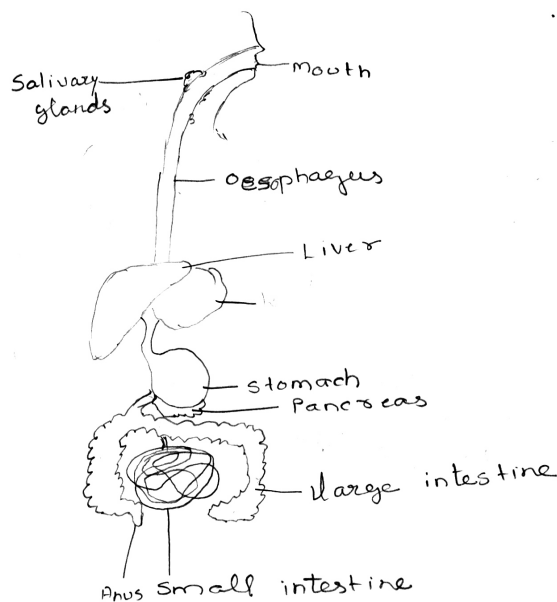 Salivary
glands
Mouth
Oesophagus
Liver
Stomach
Pancreas
large intestine
Anus
Small intestine